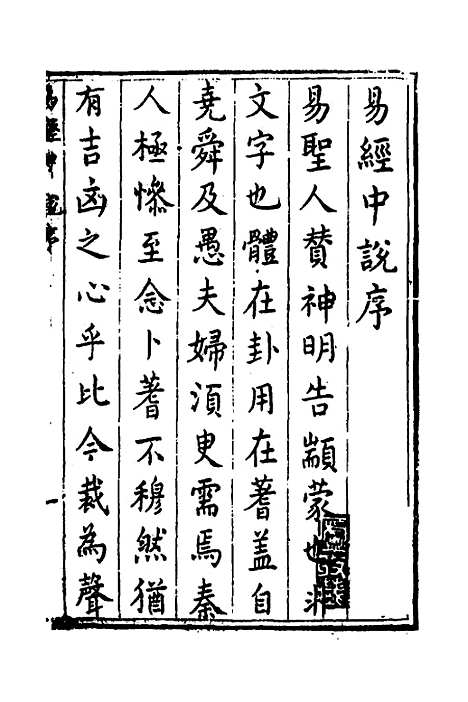 易經中說序
易聖人贊神明告顓蒙也非
文字也體在卦用在蓍蓋自
堯舜及愚夫婦須臾需焉秦
人極慘至念卜蓍不穆然猶
有吉凶之心乎比今裁為聲
易經中說序
一